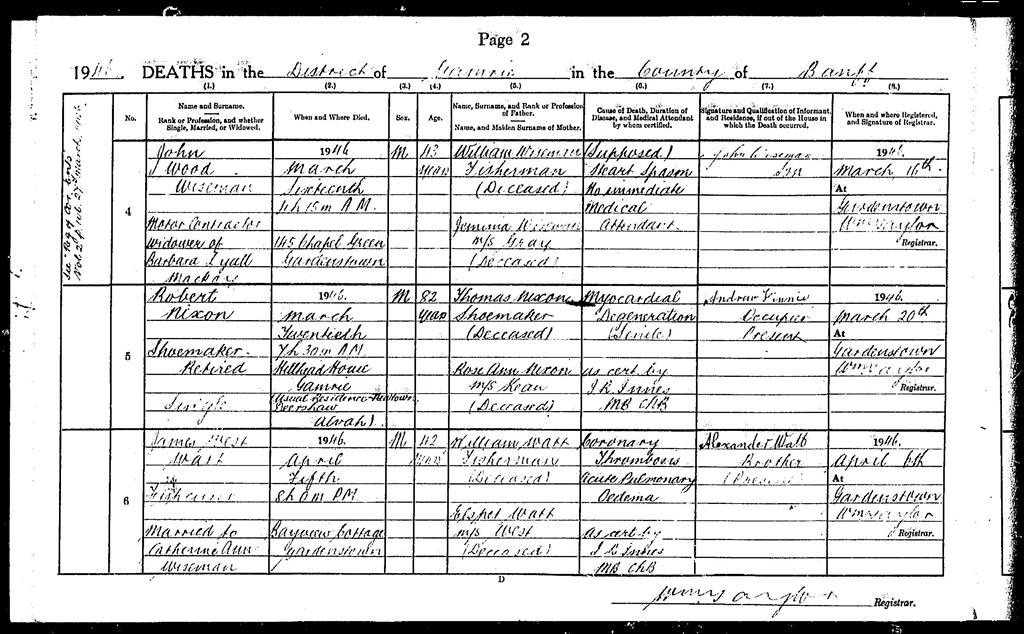 Page 2
1946. DEATHS in the District of Gamrie in the County of Banff
(1.) (2.) (3.) (4.) (5.) (6.) (7.) (8.)
No.
Name and Surname.
Rank or Profession, and whether Single, Married, or Widowed.
When and Where Died.
Sex.
Age.
Name, Surname, and Rank or Profession of Father.
Name, and Maiden Surname of Mother.
Cause of Death, Duration of Disease, and Medical Attendant by whom certified.
Signature and Qualification of Informant, and Residence, if out of the House in which the Death occurred.
When and where Registered, and Signature of Registrar.
See Reg of Cor. Ents
Vol 2 p. 27th March, 1946
4
John
Wood
Wiseman
Motor Contractor
Widower of
Barbara Lyall
Mackay
1946
March
Sixteenth
4h 15m A.M.
145 Chapel Green
Gardenstown
M
43
years
William Wiseman
Fisherman
(Deceased)
Jemima Wiseman
m/s Gray
(Deceased)
(Supposed)
Heart Spasm
No immediate
Medical
Attendant
John Wiseman
Son
1946.
March 16th
At
Gardenstown
Wm Taylor
Registrar.
5
Robert
Nixon
Shoemaker
Retired
Single
1946.
March
Twentieth
7h 30m P.M
Hillhead House
Gamrie
(Usual Residence-Newtown
Alvah)
M
82
years
Thomas Nixon
Shoemaker
(Deceased)
Rose Ann Nixon
m/s Kean
(Deceased)
Myocardial
Degeneration
(Senile)
as cert by
J.R. Innes
MB ChB
Andrew Finnie
Occupier
Present
1946.
March 20th
At
Gardenstown
Wm Taylor
Registrar.
6
James West
Watt
Fisherman
Married to
Catherine Ann
Wiseman
1946.
April
Fifth
8h 0m P.M
Bayview Cottage
Gardenstown
M
42
years
William Watt
Fisherman
(Deceased)
Elspet Watt
m/s West
(Deceased)
Coronary
Thrombosis
Acute Pulmonary
Oedema
as cert by
J R Innes
MB ChB
Alexander Watt
Brother
(Present)
1946.
April 6th
At
Gardenstown
Wm Taylor
Registrar.
D
Wm Taylor Registrar.